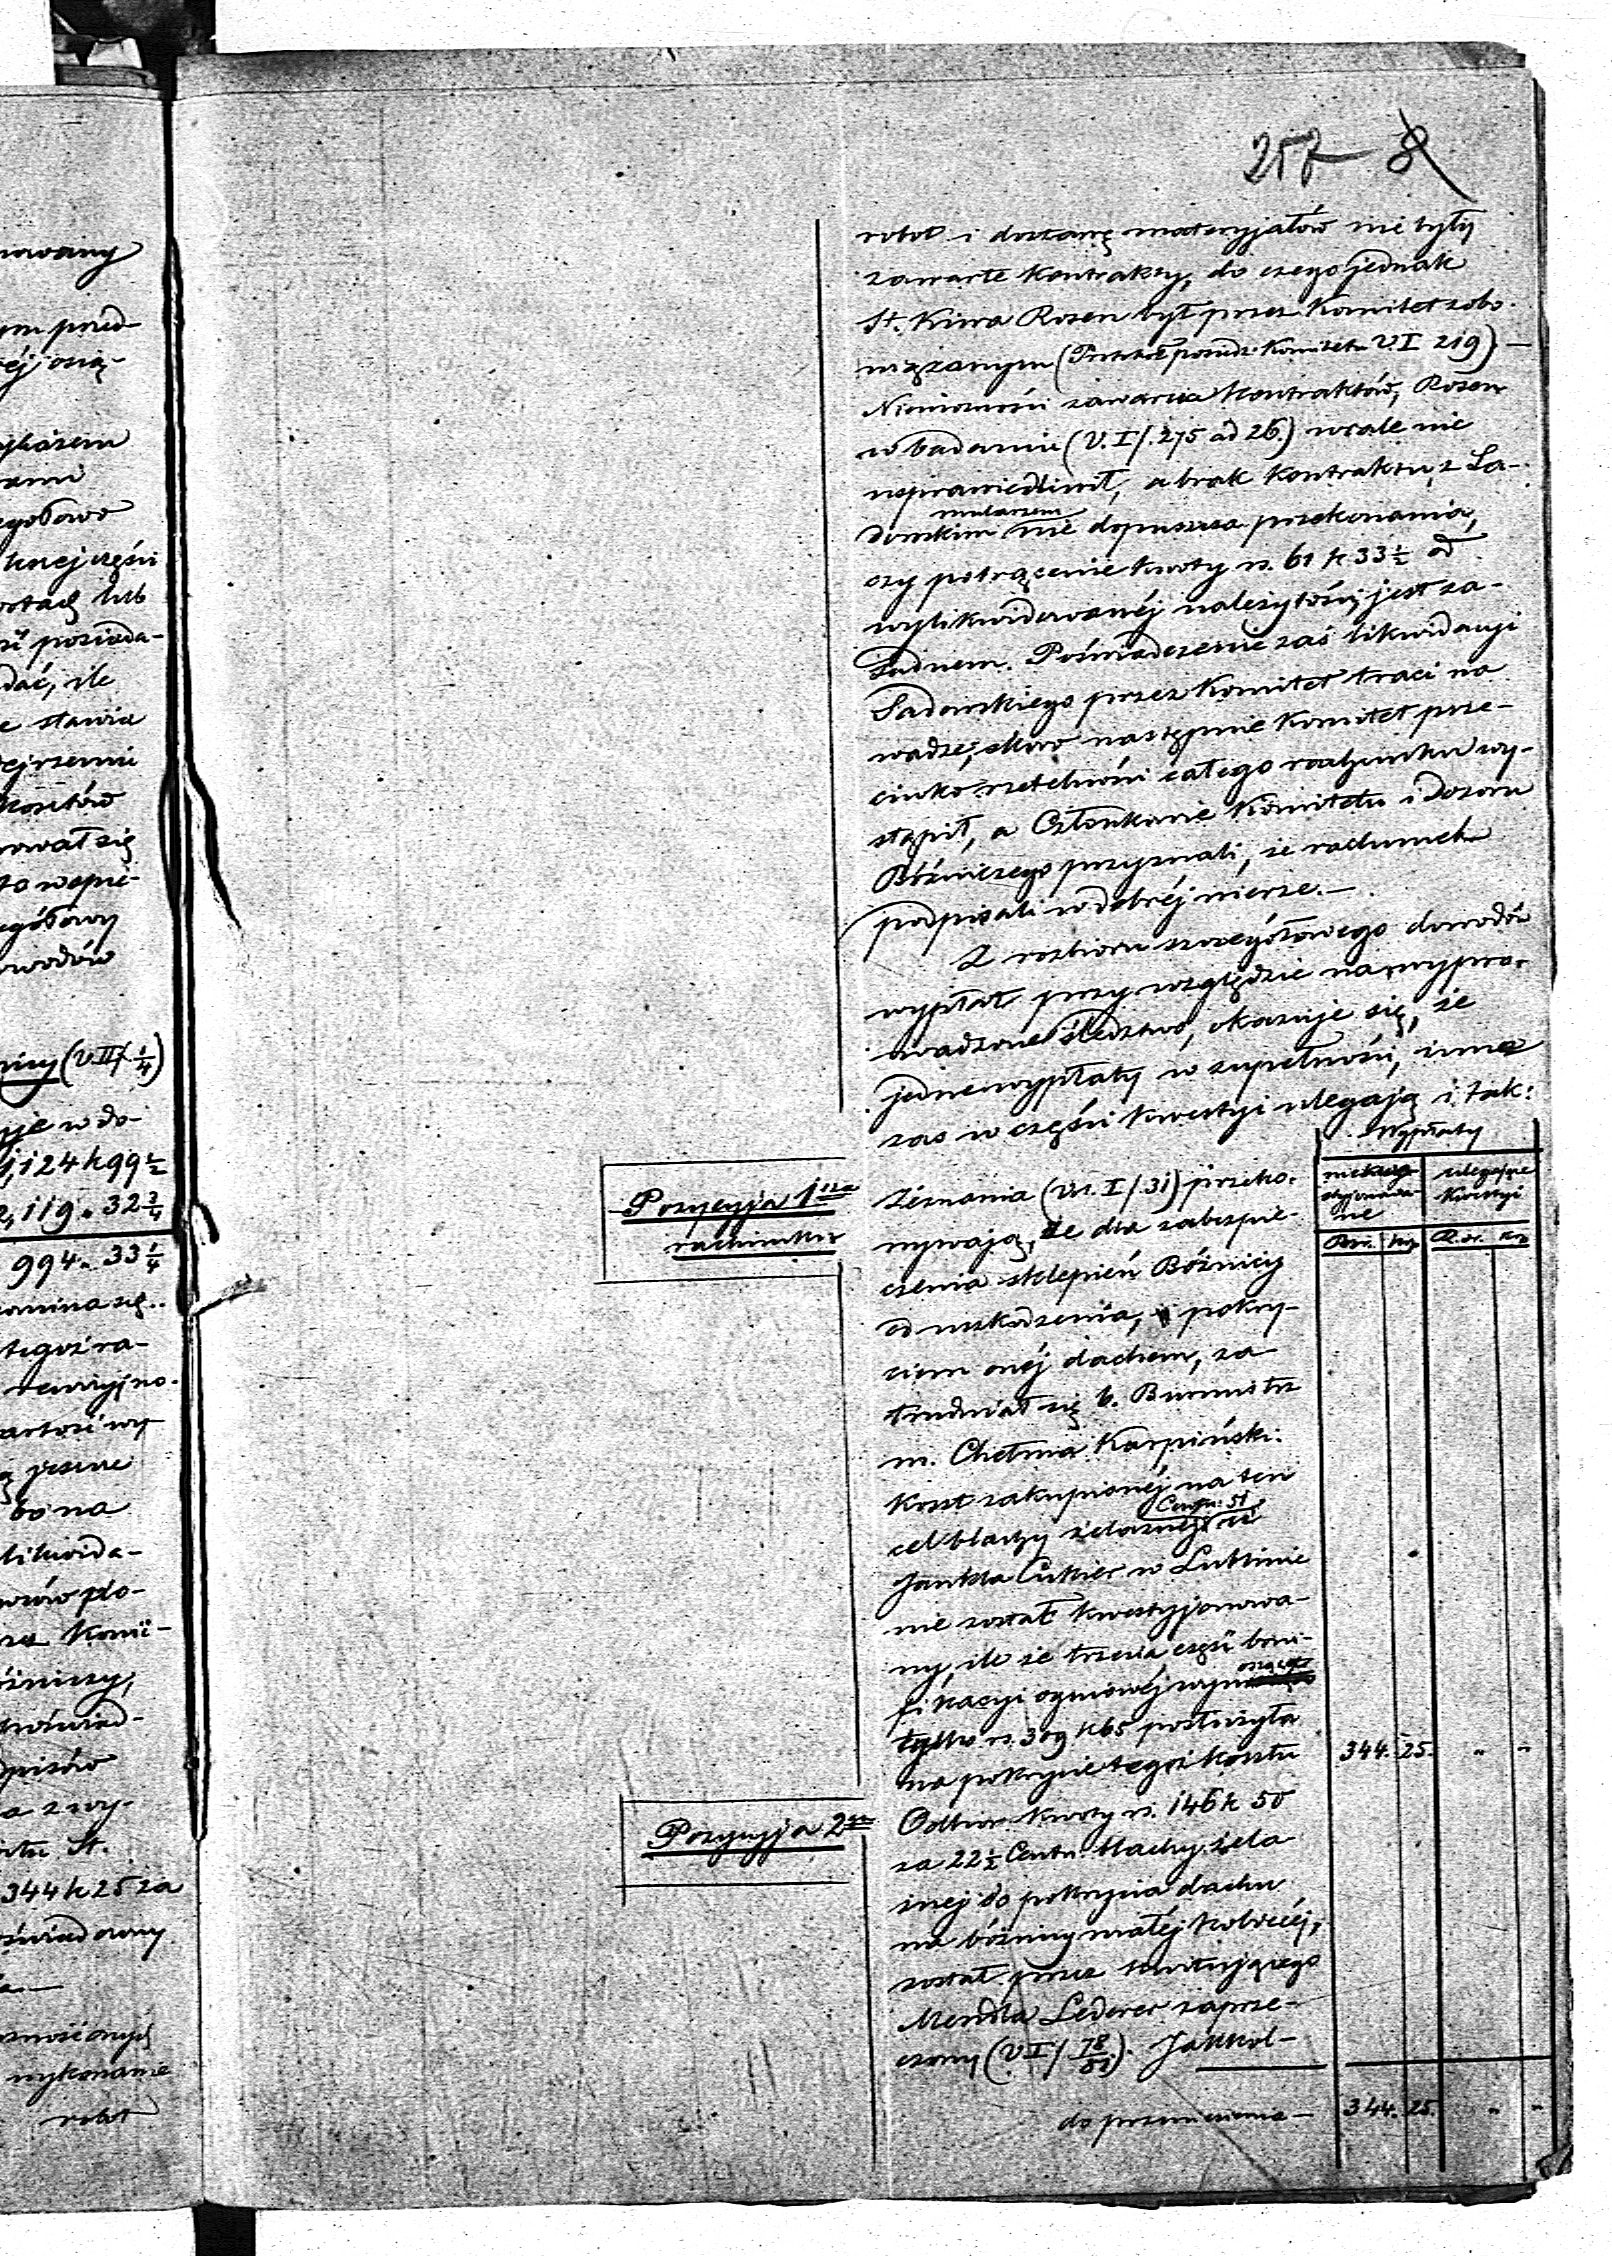 257 8
robot i dostawę materyjałów nie były
zawarte kontrakty, do czego jednak
St. Kiwa Rosen był przez Komitet zobo-
wiązanym (Protokół posiedz. Komitetu V. I 219) —
Niemożności zawarcia kontraktów, Rosen
w badaniu (V. I/. 275 ad 26.) wcale nie
usprawiedliwił, a brak kontraktu z Sa-
mularzem
dowskim nie dopuszcza przekonania,
czy potrącenie kwoty rs. 61 k 33½ od
wylikwidowanéj należytości jest za-
sadnem. Poświadczenie zaś likwidacyi
Sadowskiego przez Komitet traci na
wadze, skoro następnie Komitet prze-
ciwko rzetelności całego rachunku wy-
stąpił, a Członkowie Komitetu i Dozoru
Bóżniczego przyznali, że rachunek
podpisali w dobréj wierze. —
Z rozbioru szczegółowego dowodów
wypłat przy względzie na wypro-
wadzone śledztwo, okazuje się, że
jedne wypłaty w zupełności, inne
zas w części kwestyi ulegają i tak:
Wypłaty
niekwe-
styjonowa-
ne
ulegające
kwestyi
Rsr. kop R. sr. kop
Pozycyja 1sza
rachunku
Zeznania (Vol. I/31) przeko-
nywają, że dla zabezpie-
czenia sklepień Bóżnicy
od uszkodzenia, pokry-
ciem onéj dachem, za-
trudniał się b. Burmistrz
m. Chełma Karpiński.
Koszt zakupionéj na ten
Centn: 51
cel blachy żelaznéj u
Jankla Cukier w Lublinie
nie został kwestyjonowa-
ny, ile że trzecia część boni-
fikacyi ogniowéj wyno
sząca
tylko rs. 309 k 65 posłużyła
na pokrycie tegoż kosztu 344. 25. " "
Pozycyja 2ga
Odbior kwoty rs. 146 k 50
za 22½ Centn. blachy żela-
znej do pokrycia dachu
na bóżnicy małéj kobiecéj,
został przez kwitującego
Mendla Lederer zaprze-
czony (V. I/ 78/51). Jakkol-
do przeniesienia — 344. 25. " "
nowany
ym przed-
ykazem
ami
egółowo
ortach lub
posiada-
dać, ile
e stawia
ejrzeniu
kosztów
ował się
egółowy
owodów
nicy (V. II/ 1/4)
je w do-
1,124 k 99½
2,119 „ 32¾
994 „ 33¼
tegoż ra-
rewizyjno-
artość wy-
ą jeszcze
bo na
likwida-
Komi-
óżniczy,
pisów
a z wy-
St.
344 k 25 za
oświadczony
wykonanie
robot